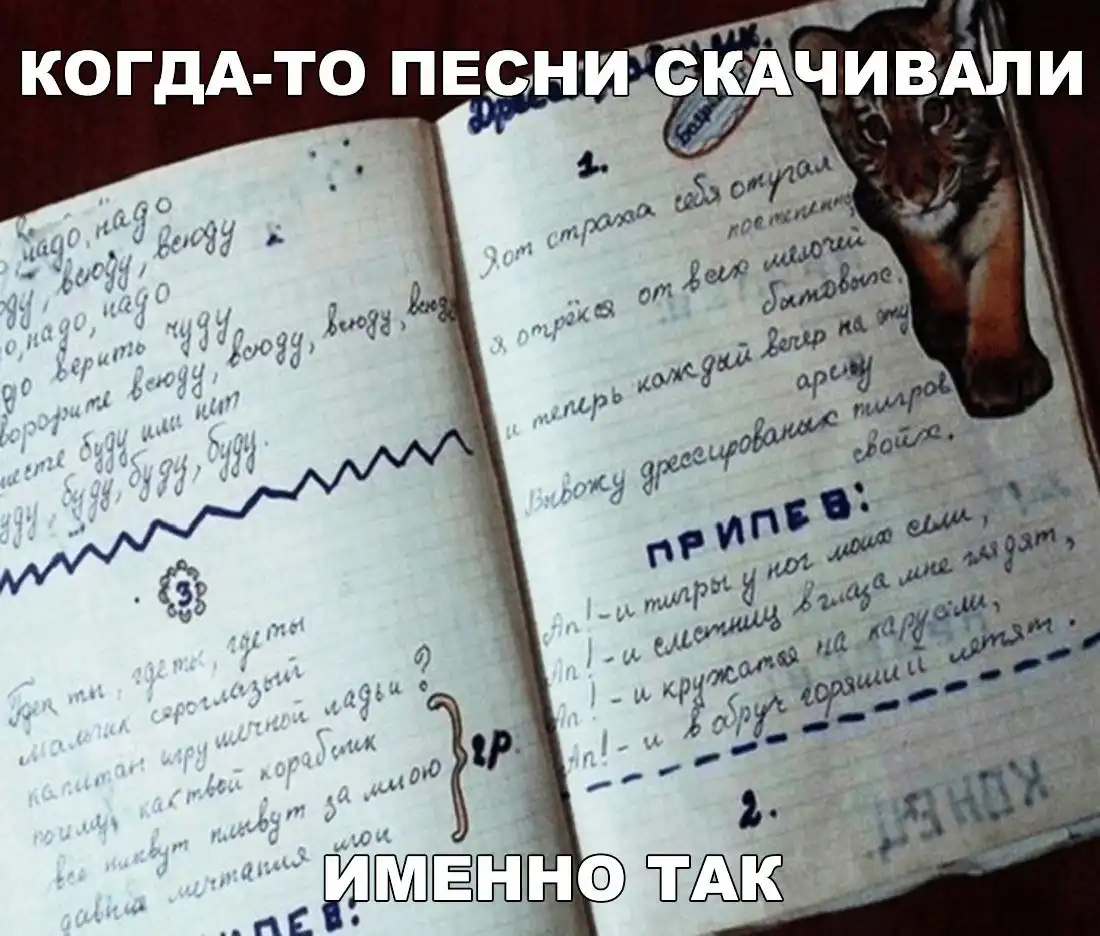 КОГДА-ТО ПЕСНИ СКАЧИВАЛИ
надо, надо
всюду, всюду
надо, надо
верить чуду
всюду, всюду, всюду, всюду
буду или нет
буду, буду, буду.
3
где ты, где ты
мальчик сероглазый
капитан игрушечной ладьи ?
почему, как твой кораблик
все плывут плывут за мною
давние мечтания мои
2р.
ПРИПЕВ:
1.
Я от страха себя отучал
постепенно,
я отрёкся от всех мелочей
бытовых.
и теперь каждый вечер на эту
арену
Вывожу дрессированых тигров
своих.
ПРИПЕВ:
Ап!-и тигры у ног моих сели,
Ап!-и слестниц в глаза мне глядят,
Ап!-и кружатся на карусели,
Ап!-и в обруч горящий летят.
2.
КОНЕЦ
ИМЕННО ТАК